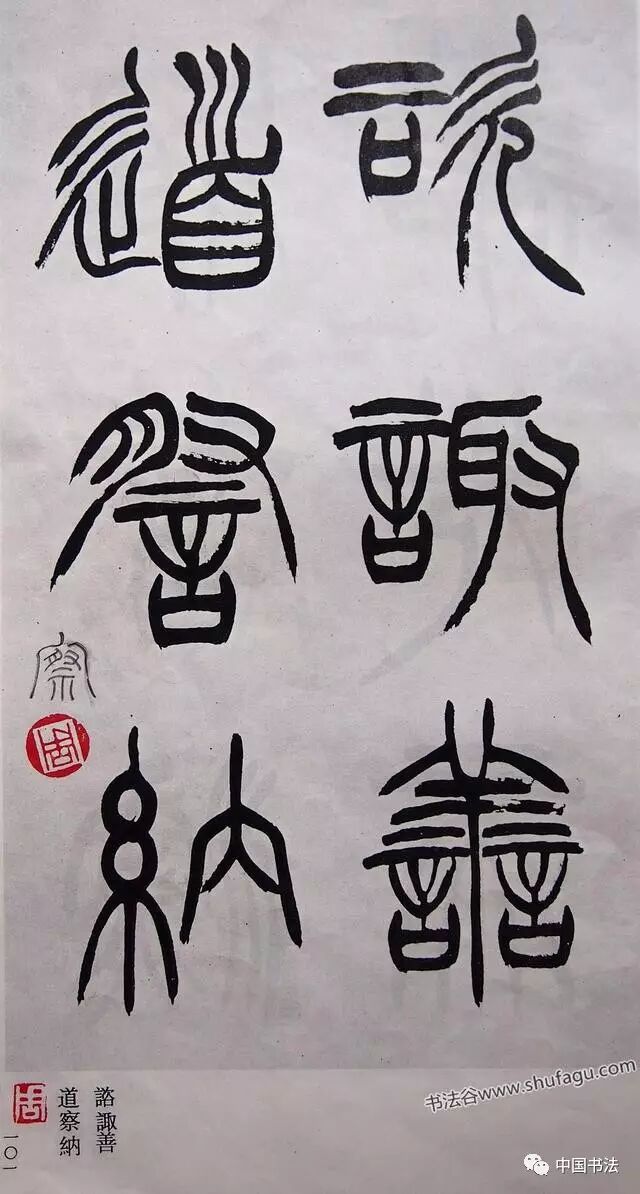 諮諏善
道詧納
察
周
諮諏善
道察納
周
一〇一
书法谷www.shufagu.com
中国书法